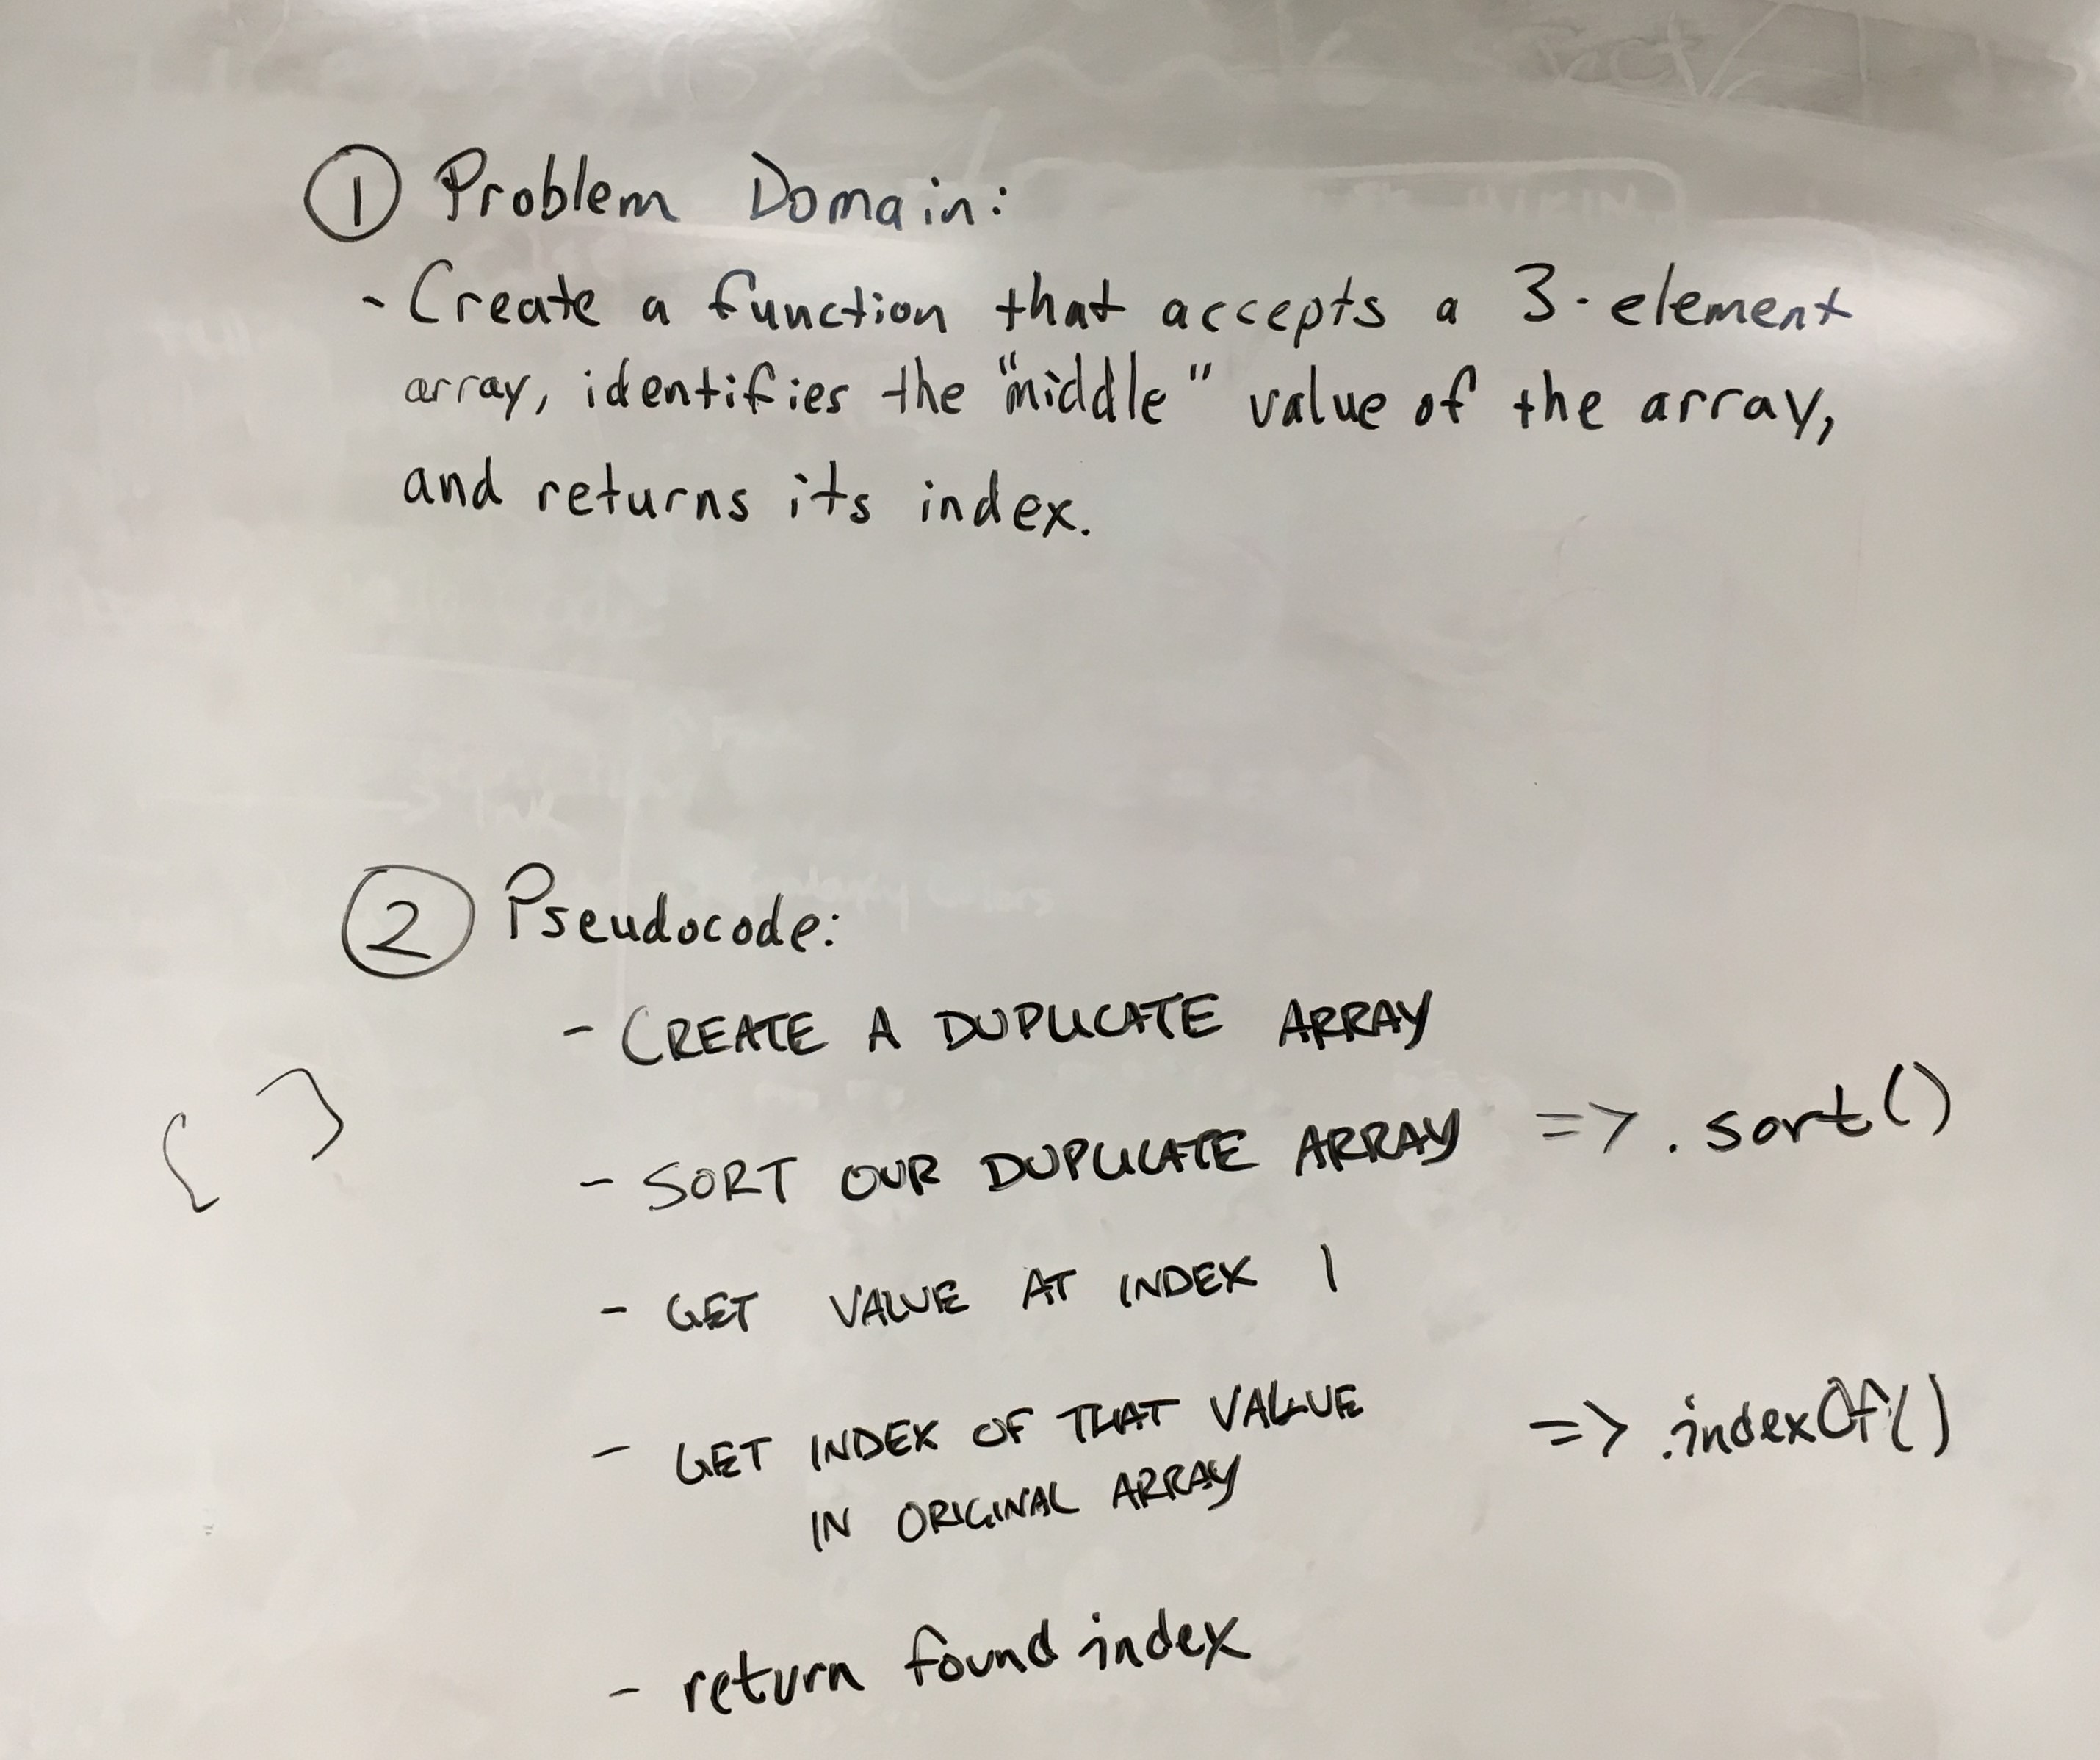 ① Problem Domain:
- Create a function that accepts a 3-element
array, identifies the "middle" value of the array,
and returns its index.
② Pseudocode:
- CREATE A DUPLICATE ARRAY
[ ]
- SORT OUR DUPLICATE ARRAY => .sort()
- GET VALUE AT INDEX 1
- GET INDEX OF THAT VALUE => .indexOf()
IN ORIGINAL ARRAY
- return found index